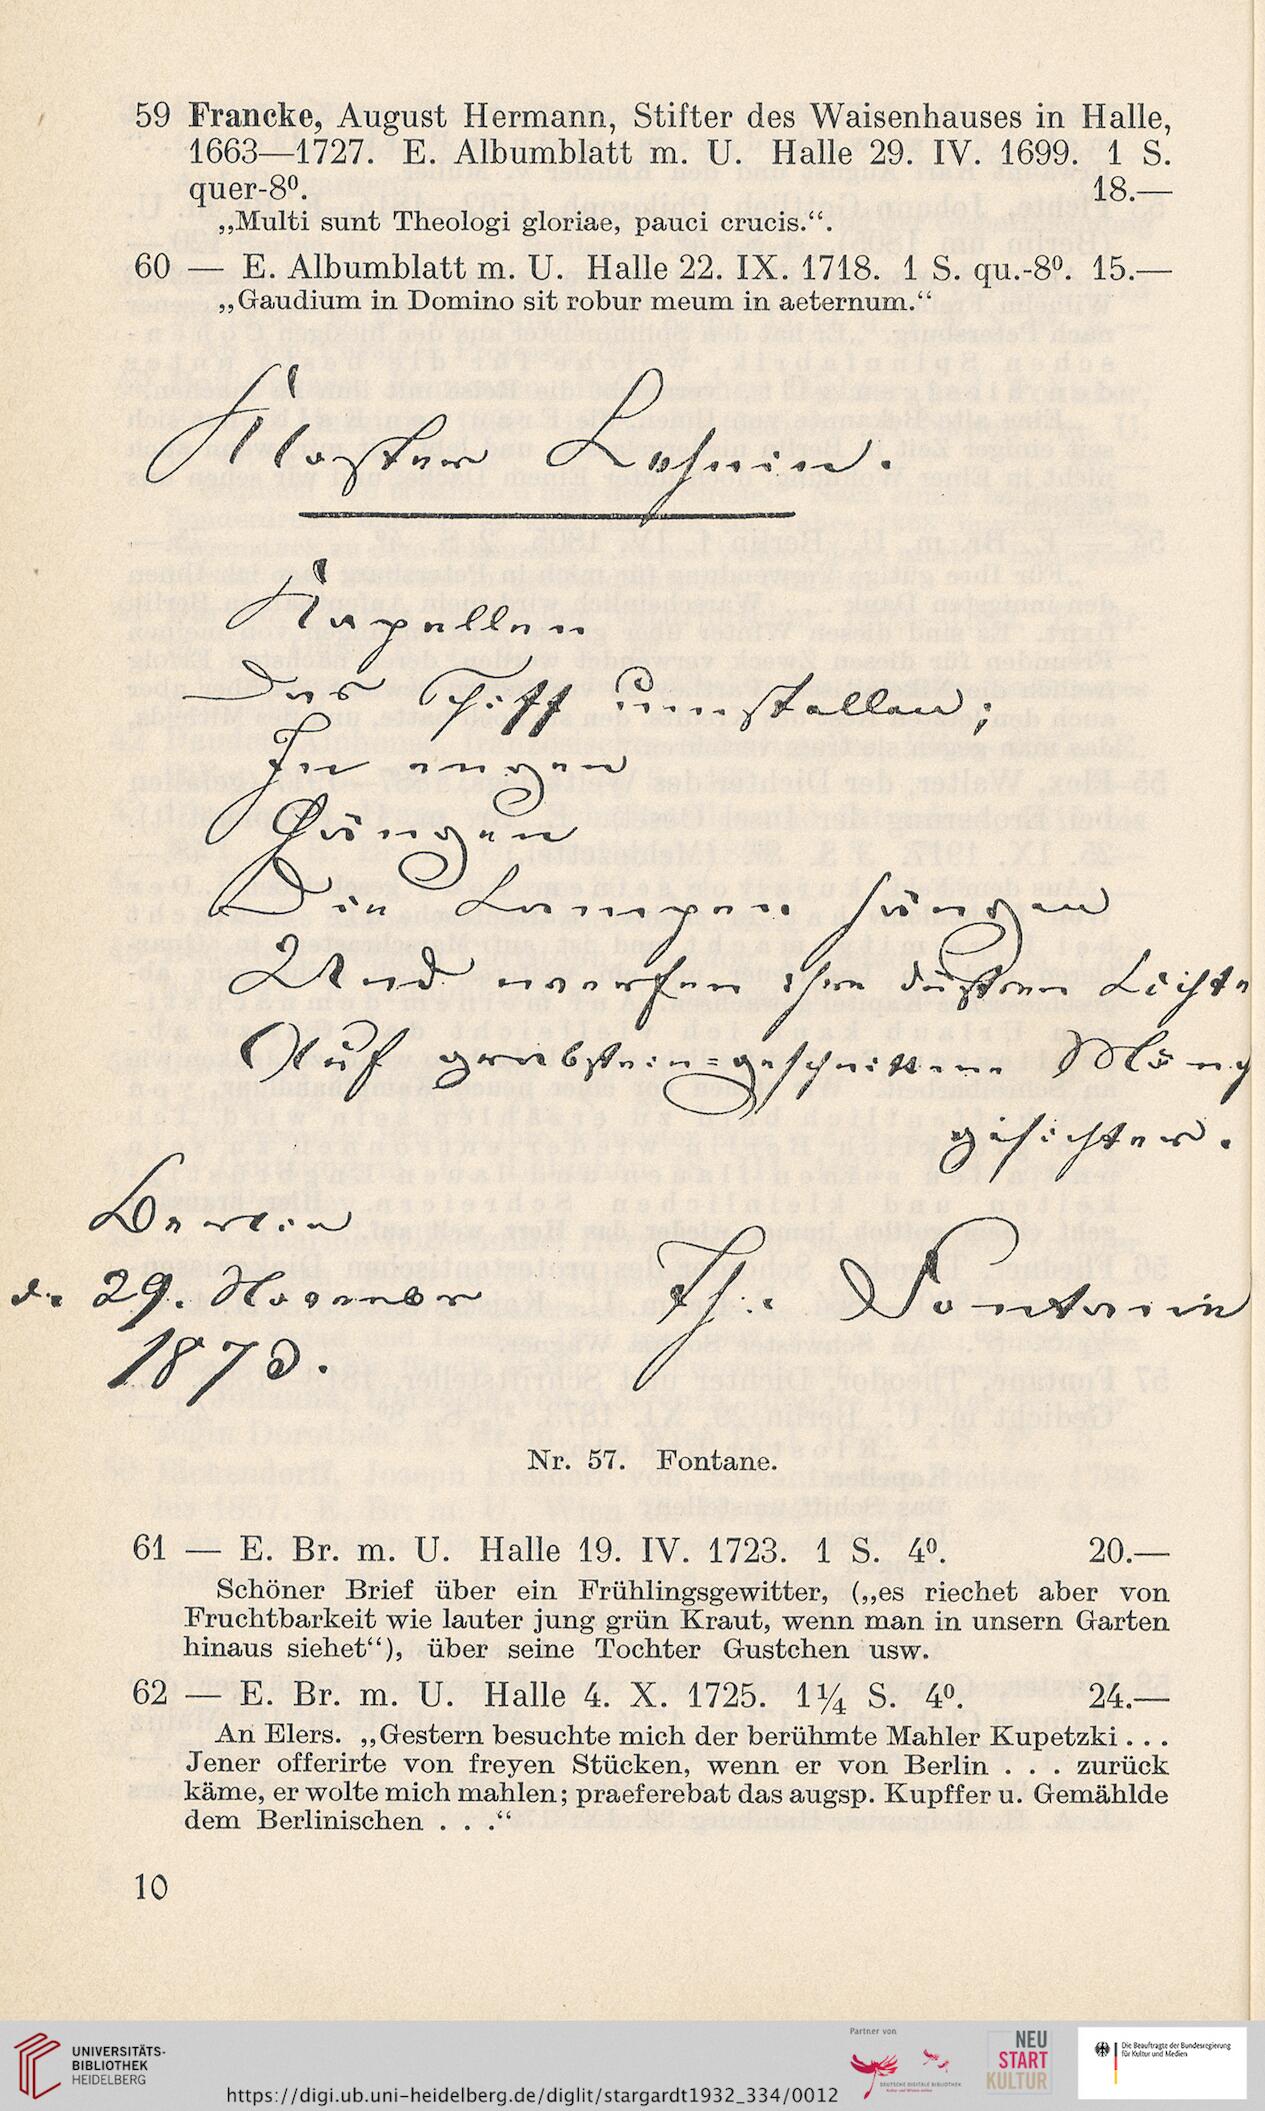 59 Francke, August Hermann, Stifter des Waisenhauses in Halle,
1663—1727. E. Albumblatt m. U. Halle 29. IV. 1699. 1 S.
quer-8⁰. 18.—
„Multi sunt Theologi gloriae, pauci crucis.“.
60 — E. Albumblatt m. U. Halle 22. IX. 1718. 1 S. qu.-8⁰. 15.—
„Gaudium in Domino sit robur meum in aeternum.“
Kloster Lehnin.
Kapellen
Das Schiff umstellen;
In engen
Gängen
Die Lampen hängen
Und werfen ihre düstren Lichter
Auf grabstein-geschnittene Mönchs
gesichter.
Berlin
d. 29. November
1873.
Th. Fontane
Nr. 57. Fontane.
61 — E. Br. m. U. Halle 19. IV. 1723. 1 S. 4⁰. 20.—
Schöner Brief über ein Frühlingsgewitter, („es riechet aber von
Fruchtbarkeit wie lauter jung grün Kraut, wenn man in unsern Garten
hinaus siehet“), über seine Tochter Gustchen usw.
62 — E. Br. m. U. Halle 4. X. 1725. 1¼ S. 4⁰. 24.—
An Elers. „Gestern besuchte mich der berühmte Mahler Kupetzki . . .
Jener offerirte von freyen Stücken, wenn er von Berlin . . . zurück
käme, er wolte mich mahlen; praeferebat das augsp. Kupffer u. Gemählde
dem Berlinischen . . .“
10
UNIVERSITÄTS-
BIBLIOTHEK
HEIDELBERG
https://digi.ub.uni-heidelberg.de/diglit/stargardt1932_334/0012
Partner von
DEUTSCHE DIGITALE BIBLIOTHEK
Kultur und Wissen online
NEU
START
KULTUR
Die Beauftragte der Bundesregierung
für Kultur und Medien